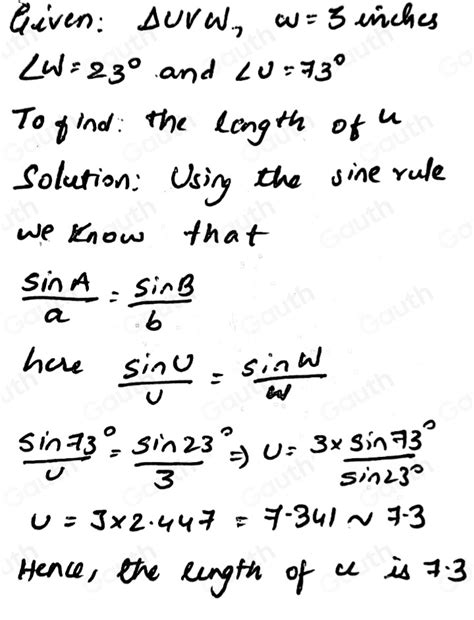 Given: ΔUVW, w = 3 inches
∠W = 23° and ∠U = 73°
To find: the length of u
Solution: Using the sine rule
we know that
sin A / a = sin B / b
here sin U / U = sin W / W
sin 73° / U = sin 23° / 3 ⇒ U = 3 × sin 73° / sin 23°
U = 3 × 2.447 = 7.341 ~ 7.3
Hence, the length of u is 7.3